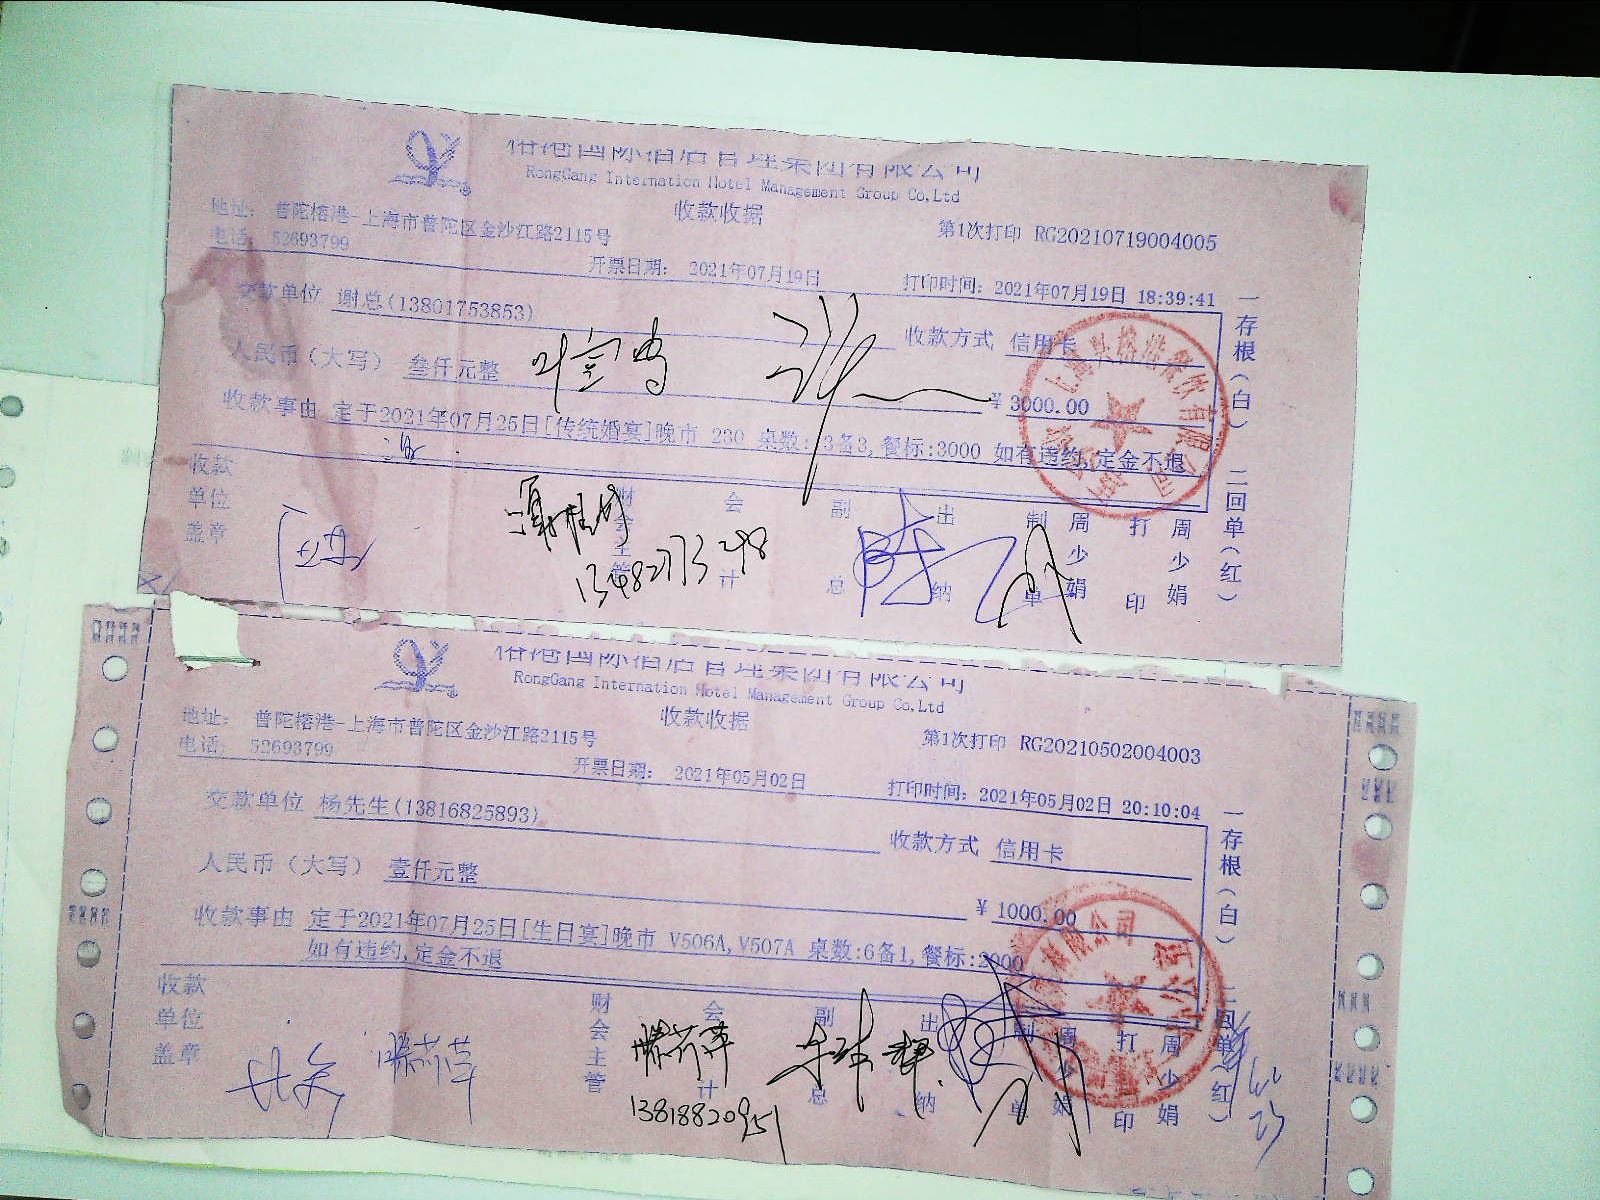 RongGang Internation Hotel Management Group Co.,Ltd
收款收据
地址: 普陀榕港-上海市普陀区金沙江路2115号
第1次打印 RG20210719004005
电话: 52693799
开票日期: 2021年07月19日
打印时间: 2021年07月19日 18:39:41
交款单位 谢总(13801753853)
收款方式 信用卡
人民币(大写) 叁仟元整
¥ 3000.00
收款事由 定于2021年07月25日[传统婚宴]晚市 230 桌数: 3备3,餐标:3000 如有违约,定金不退
收款单位盖章
财会主管
会计
副总
出纳
制单 周少娟
打印 周少娟
13482773298
一存根(白) 二回单(红)
RongGang Internation Hotel Management Group Co.Ltd
收款收据
地址: 普陀榕港-上海市普陀区金沙江路2115号
第1次打印 RG20210502004003
电话: 52693799
开票日期: 2021年05月02日
打印时间: 2021年05月02日 20:10:04
交款单位 杨先生(13816825893)
收款方式 信用卡
人民币(大写) 壹仟元整
¥ 1000.00
收款事由 定于2021年07月25日[生日宴]晚市 V506A,V507A 桌数:6备1,餐标:2000
如有违约,定金不退
收款单位盖章
财会主管
会计
副总
出纳
制单 周少娟
打印 周少娟
13818820951
一存根(白) 二回单(红)